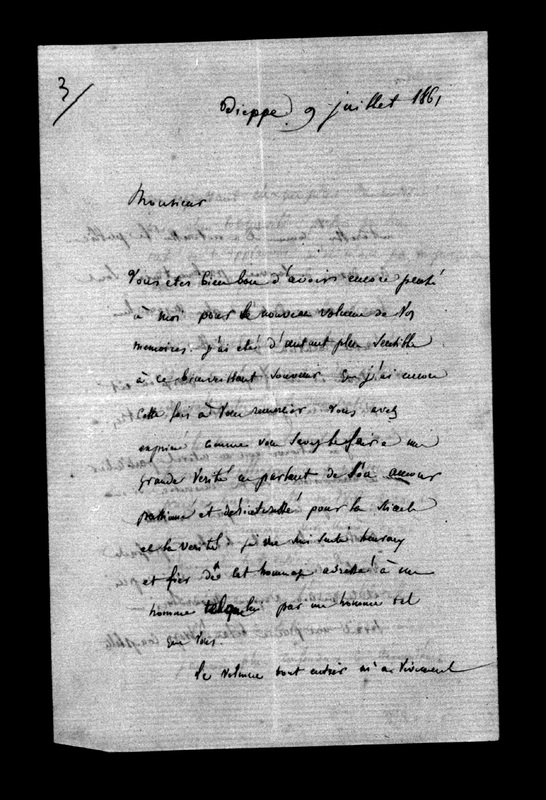 3/
Dieppe 9 juillet 1861
Monsieur
Vous etes bien bon d'avoir encore pensé
à moi pour le nouveau volume de vos
memoires. j'ai eté d'autant plus sensible
à ce bienveillant souvenir. que j'ai encore
cette fois à vous remercier vous avez
exprimé comme vous savez le faire une
grande verité en parlant de son amour
passionné et desinteressé pour la
et la verité je me suis senti heureux
et fier de cet hommage adressé à un
homme tel que lui par un homme tel
que vous.
le volume tout entier m'a vivement